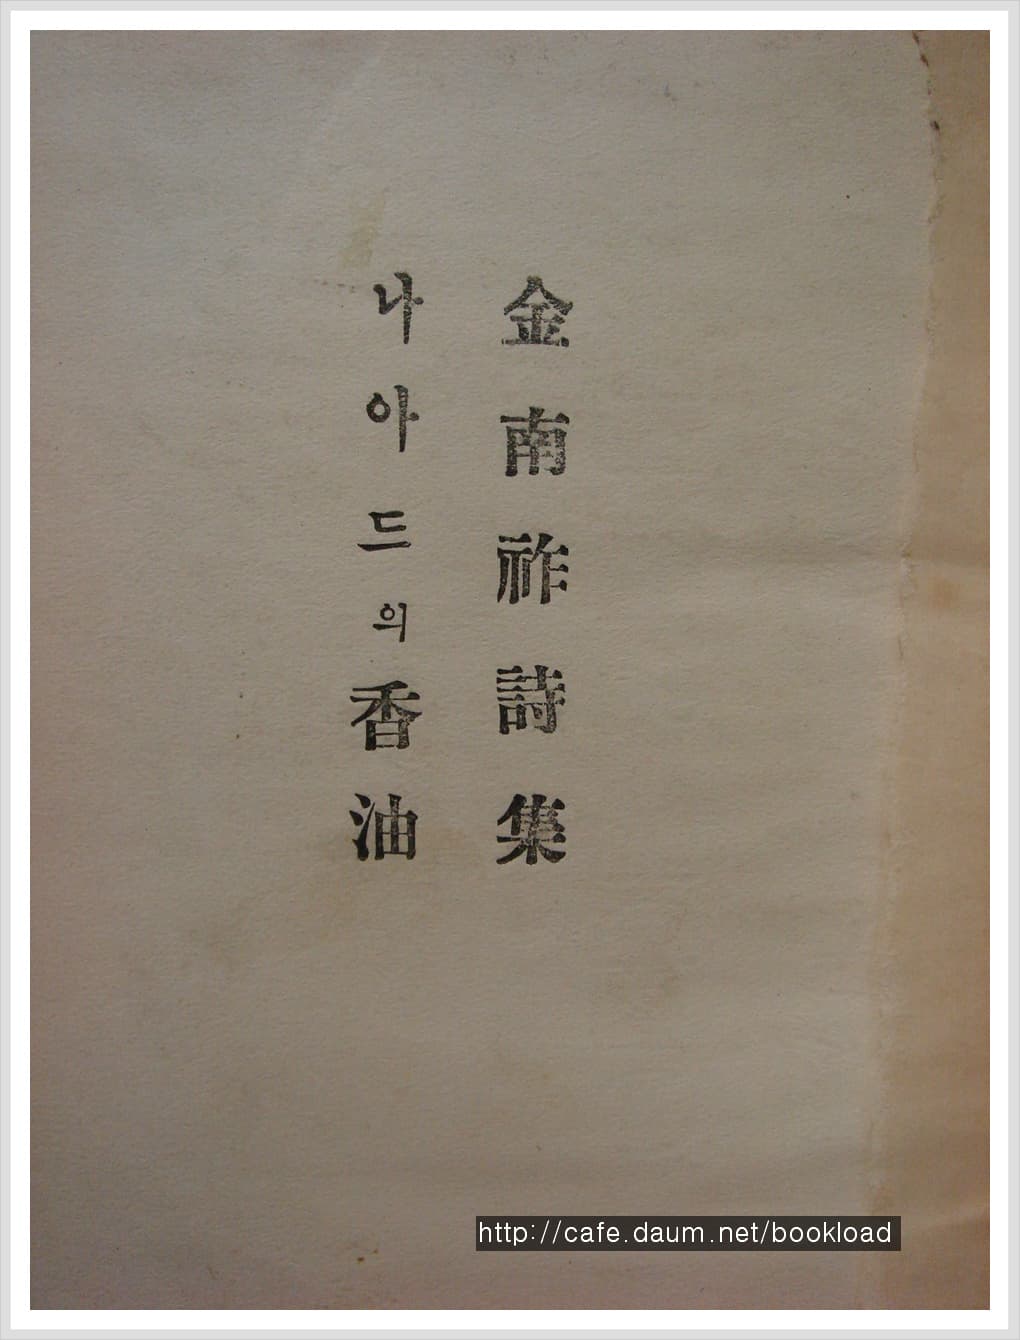 金南祚詩集
나아드의香油
http://cafe.daum.net/bookload